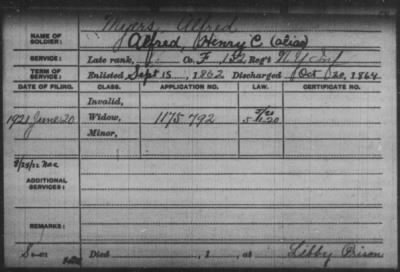 Myers Alfred
NAME OF SOLDIER: Alfred, Henry C (alias)
SERVICE: Late rank, Co. F, 132 Reg't N.Y. Inf
TERM OF SERVICE: Enlisted Sept 15, 1862 Discharged Oct 20, 1864
DATE OF FILING. CLASS. APPLICATION NO. LAW. CERTIFICATE NO.
Invalid,
1921 June 20 Widow, 1175 792
Minor,
ADDITIONAL SERVICES:
REMARKS:
Died , 1 , at Libby Prison